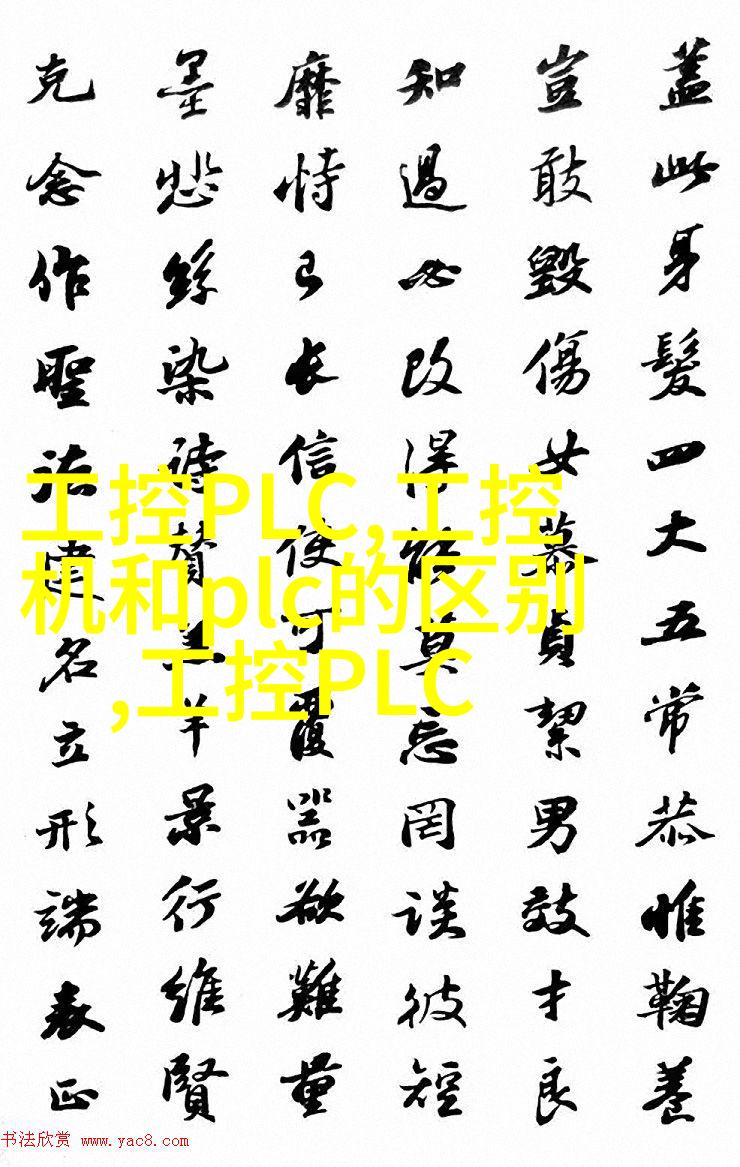 蓋此身髮四大五常恭惟鞠養
豈敢毀傷女慕貞絜男效才良
知過必改得能莫忘罔談彼短
靡恃己長信使可覆器欲難量
墨悲絲染詩贊羔羊景行維賢
克念作聖建名立形端表正
工控PLC,工控
机和plc的区别
,工控PLC
书法欣赏 www.yac8.com